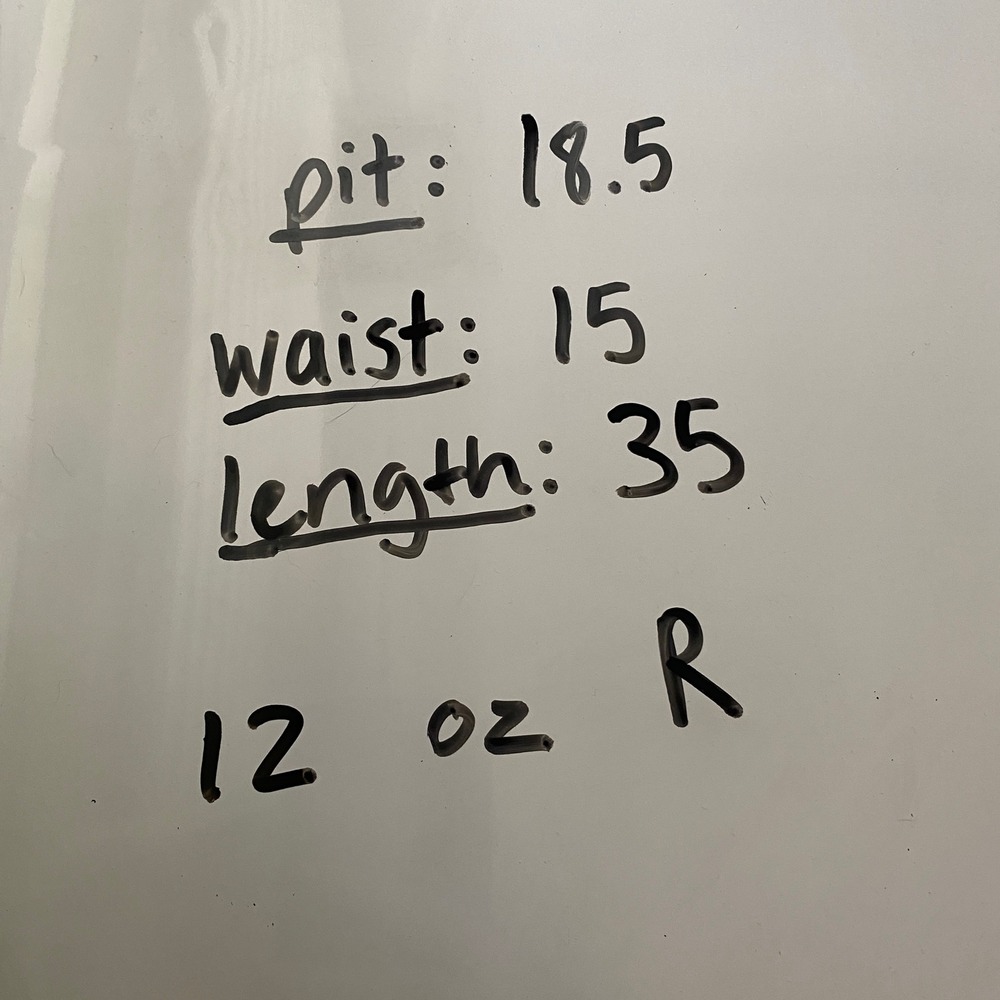 pit: 18.5
waist: 15
length: 35
12 oz R